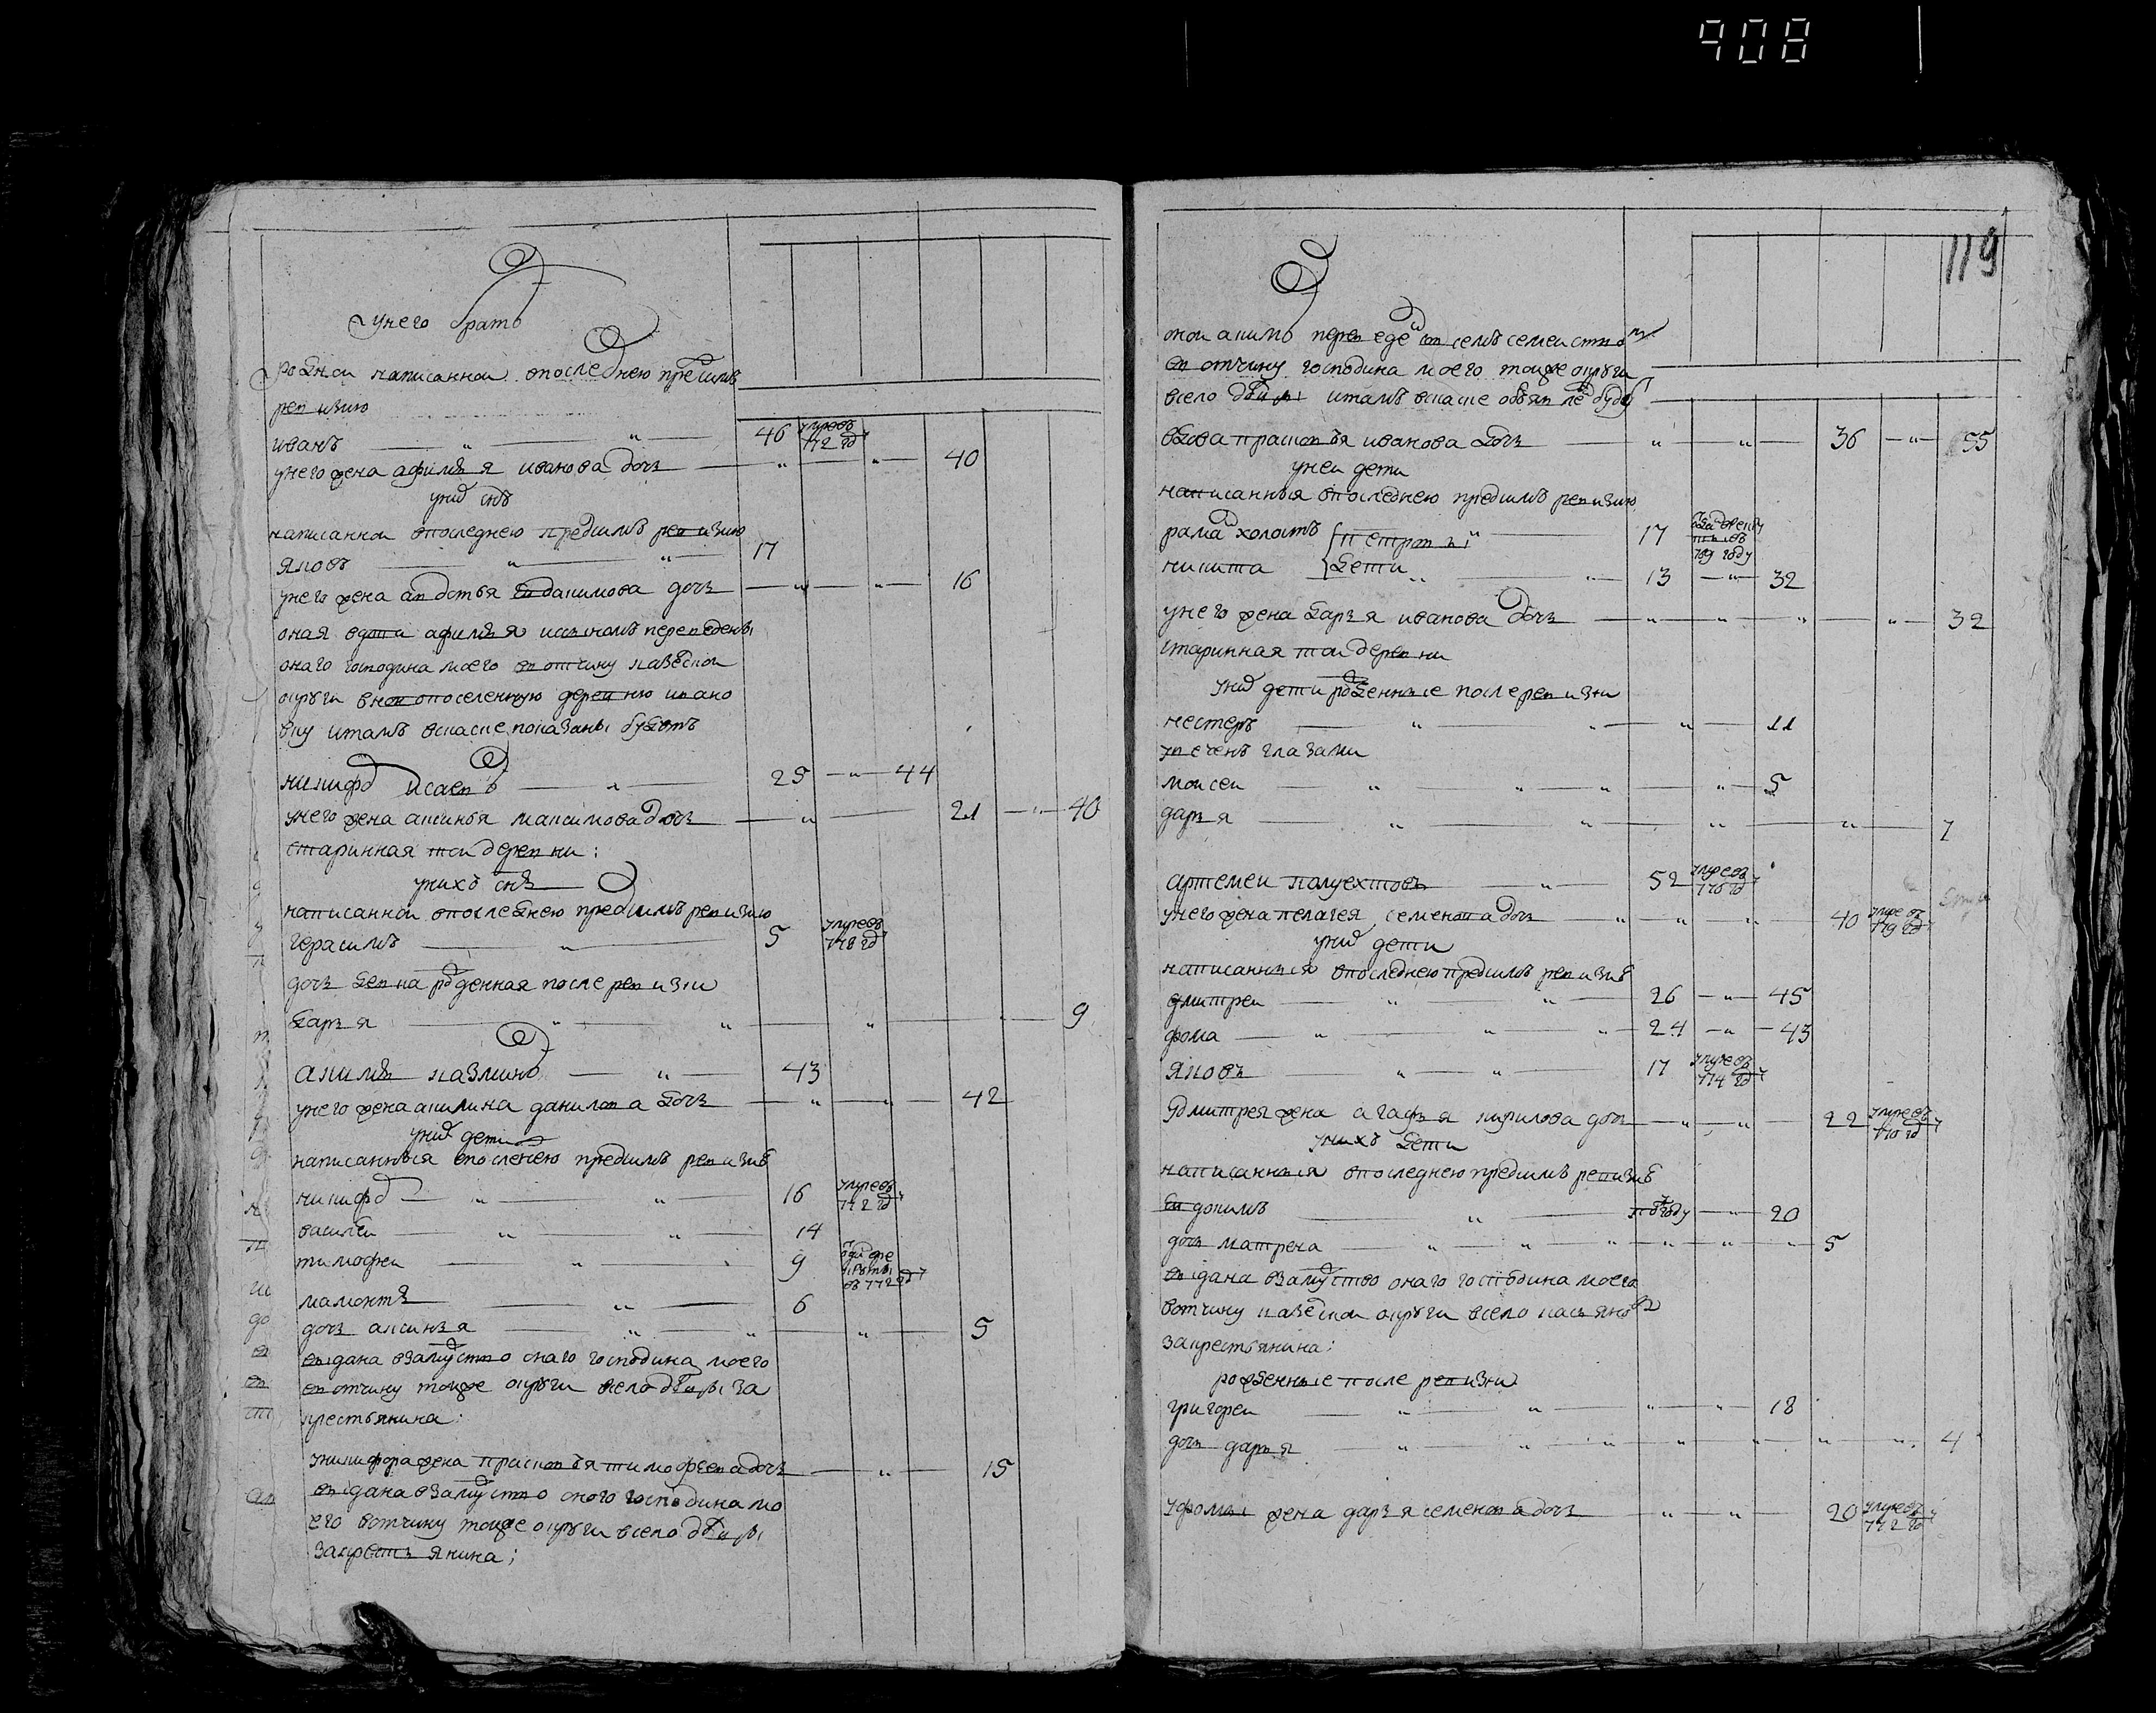 908
у него братъ
родной написанной в последнею пред симъ
ревизию
иванъ — " — " — 46 умре въ 772 год
у него жена афимья иванова дочь — " — " — 40
у них снъ
написанной в последнею пред симъ ревизию
яковъ — " — " — 17
у него жена авдотья евдакимова дочь — " — " — 16
оная вдова афимья и с сыномъ переведены
онаго господина моего в вотчину
округи в новопоселенную деревню ивано
вку и тамъ в скаске показаны будутъ
никифор исаевъ — " — 25 — " — 44
у него жена аксинья максимова дочь — " — 21 — " — 40
старинная той деревни:
у нихъ снъ
написанной в последнею пред симъ ревизию
герасимъ — " — 5 умре въ 778 год
дочь девка рожденная после ревизии
дарья — " — " — " — 9
акимъ казминъ — " — 43
у него жена акилина данилова дочь — " — " — 42
у них дети
написанныя в последнею пред симъ ревизию
никифор — " — " — 16 умре въ 772 год
василей — " — " — 14
тимофей — " — 9 въ 772 год
мамонтъ — " — 6
дочь аксинья — " — " — " — 5
выдана в замужство онаго господина моего
в вотчину тойже округи в село за
крестьянина:
у никифора жена прасковья тимофеева дочь — " — 15
выдана в замужство оного господина мо
его вотчину тойже округи в село
за крестьянина;
119
оной акимъ переведен со всемъ семейством
в вотчину господина моего тойже округи
в село и тамъ в скаске объявлен буду
вдова прасковья иванова дочь — " — " — 36 — " — 55
у ней дети
написанныя в последнею пред симъ ревизию
холостъ { петровы " — 17 789 году
никита дети " — " — 13 — " — 32
у него жена дарья иванова дочь — " — " — " — " — 32
старинная той деревни
у них дети рожденные после ревизии
нестеръ — " — " — " — 11
увеченъ глазами
моисей — " — " — " — " — 5
дарья — " — " — " — " — 7
артемей полуехтовъ — " — 52 умре въ 776 год
у него жена пелагея семенова дочь " — " — " — 40 умре въ 779 год
у них дети
написанныя в последнею пред симъ ревизию
дмитрей — " — " — 26 — " — 45
фома — " — " — " — 24 — " — 43
яковъ — " — " — 17 умре въ 774 год
у дмитрея жена агафья кирилова дочь — " — " — 22 умре въ 770 год
у нихъ дети
написанныя в последнею пред симъ ревизию
евдокимъ — " — году — " — 20
дочь матрена — " — " — " — " — " — 5
выдана в замужство онаго господина моего
вотчину округи в село
за крестьянина:
рожденные после ревизии
григорей — " — " — " — " — 18
дочь дарья — " — " — " — " — " — " — " — 4
у фомы жена дарья семенова дочь — " — " — 20 умре въ 772 го